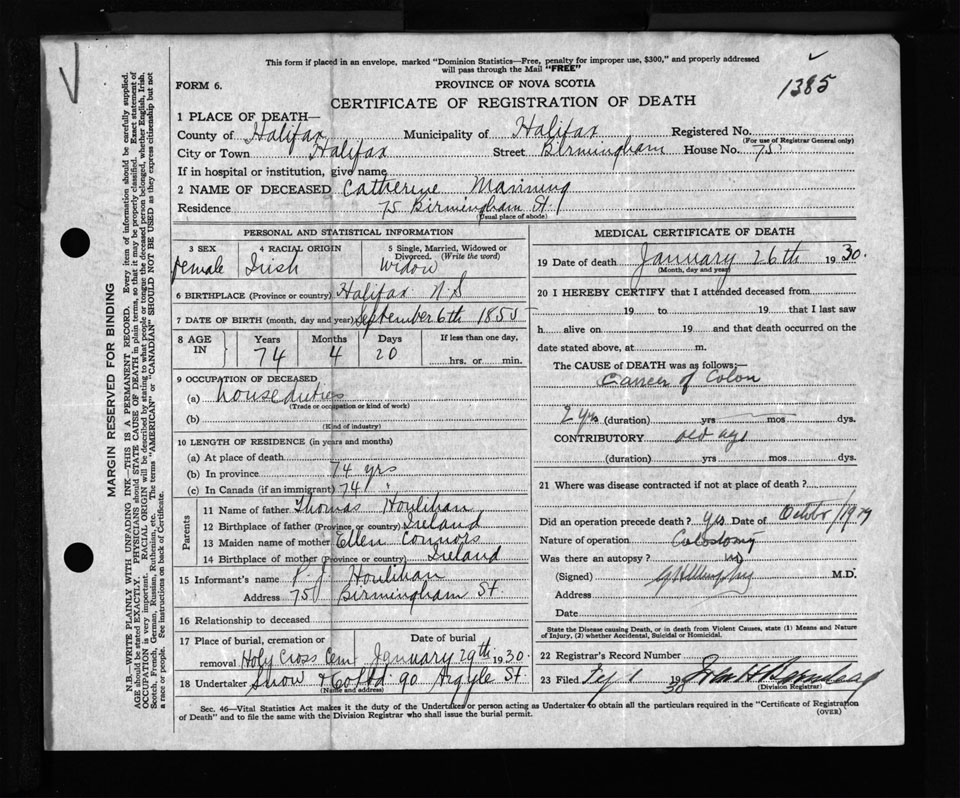 This form if placed in an envelope, marked "Dominion Statistics—Free, penalty for improper use, $300," and properly addressed
will pass through the Mail "FREE"
1385
FORM 6.
PROVINCE OF NOVA SCOTIA
CERTIFICATE OF REGISTRATION OF DEATH
1 PLACE OF DEATH—
County of Halifax Municipality of Halifax Registered No.
(For use of Registrar General only)
City or Town Halifax Street Birmingham House No. 75
If in hospital or institution, give name
2 NAME OF DECEASED Catherine Manning
Residence 75 Birmingham St.
(Usual place of abode)
PERSONAL AND STATISTICAL INFORMATION
3 SEX 4 RACIAL ORIGIN 5 Single, Married, Widowed or Divorced. (Write the word)
Female Irish Widow
6 BIRTHPLACE (Province or country) Halifax N.S
7 DATE OF BIRTH (month, day and year) September 6th 1855
8 AGE IN Years Months Days If less than one day,
74 4 20 hrs. or min.
9 OCCUPATION OF DECEASED
(a) house duties
(Trade or occupation or kind of work)
(b)
(Kind of industry)
10 LENGTH OF RESIDENCE (in years and months)
(a) At place of death
(b) In province 74 yrs
(c) In Canada (if an immigrant) 74 "
Parents
11 Name of father Thomas Houlihan
12 Birthplace of father (Province or country) Ireland
13 Maiden name of mother Ellen Connors
14 Birthplace of mother (Province or country) Ireland
15 Informant's name P. J. Houlihan
Address 75 Birmingham St.
16 Relationship to deceased
17 Place of burial, cremation or removal Date of burial
Holy Cross Cem January 29th 1930.
18 Undertaker Snow & Co Ltd 90 Argyle St.
(Name and address)
MEDICAL CERTIFICATE OF DEATH
19 Date of death January 26th 1930.
(Month, day and year)
20 I HEREBY CERTIFY that I attended deceased from
19 to 19, that I last saw
h alive on 19 and that death occurred on the
date stated above, at m.
The CAUSE of DEATH was as follows:—
Cancer of Colon
2 yrs (duration) yrs mos dys.
CONTRIBUTORY old age
(duration) yrs mos dys.
21 Where was disease contracted if not at place of death?
Did an operation precede death? yes Date of October/1929
Nature of operation Colostomy
Was there an autopsy? no
(Signed) M.D.
Address
Date
State the Disease causing Death, or in death from Violent Causes, state (1) Means and Nature
of Injury, (2) whether Accidental, Suicidal or Homicidal.
22 Registrar's Record Number
23 Filed Fey 1 1930
(Division Registrar)
Sec. 46—Vital Statistics Act makes it the duty of the Undertaker or person acting as Undertaker to obtain all the particulars required in the "Certificate of Registration
of Death" and to file the same with the Division Registrar who shall issue the burial permit.
(OVER)
MARGIN RESERVED FOR BINDING
N.B.—WRITE PLAINLY WITH UNFADING INK—THIS IS A PERMANENT RECORD. Every item of information should be carefully supplied.
AGE should be stated EXACTLY. PHYSICIANS should STATE CAUSE OF DEATH in plain terms, so that it may be properly classified. Exact statement of
OCCUPATION is very important. RACIAL ORIGIN will be described by stating to what people or tongue the deceased person belonged, whether English, Irish,
Scotch, French, German, Russian, Ruthenian, etc. The terms "AMERICAN" or "CANADIAN" SHOULD NOT BE USED as they express citizenship but not
a race or people. See instructions on back of Certificate.